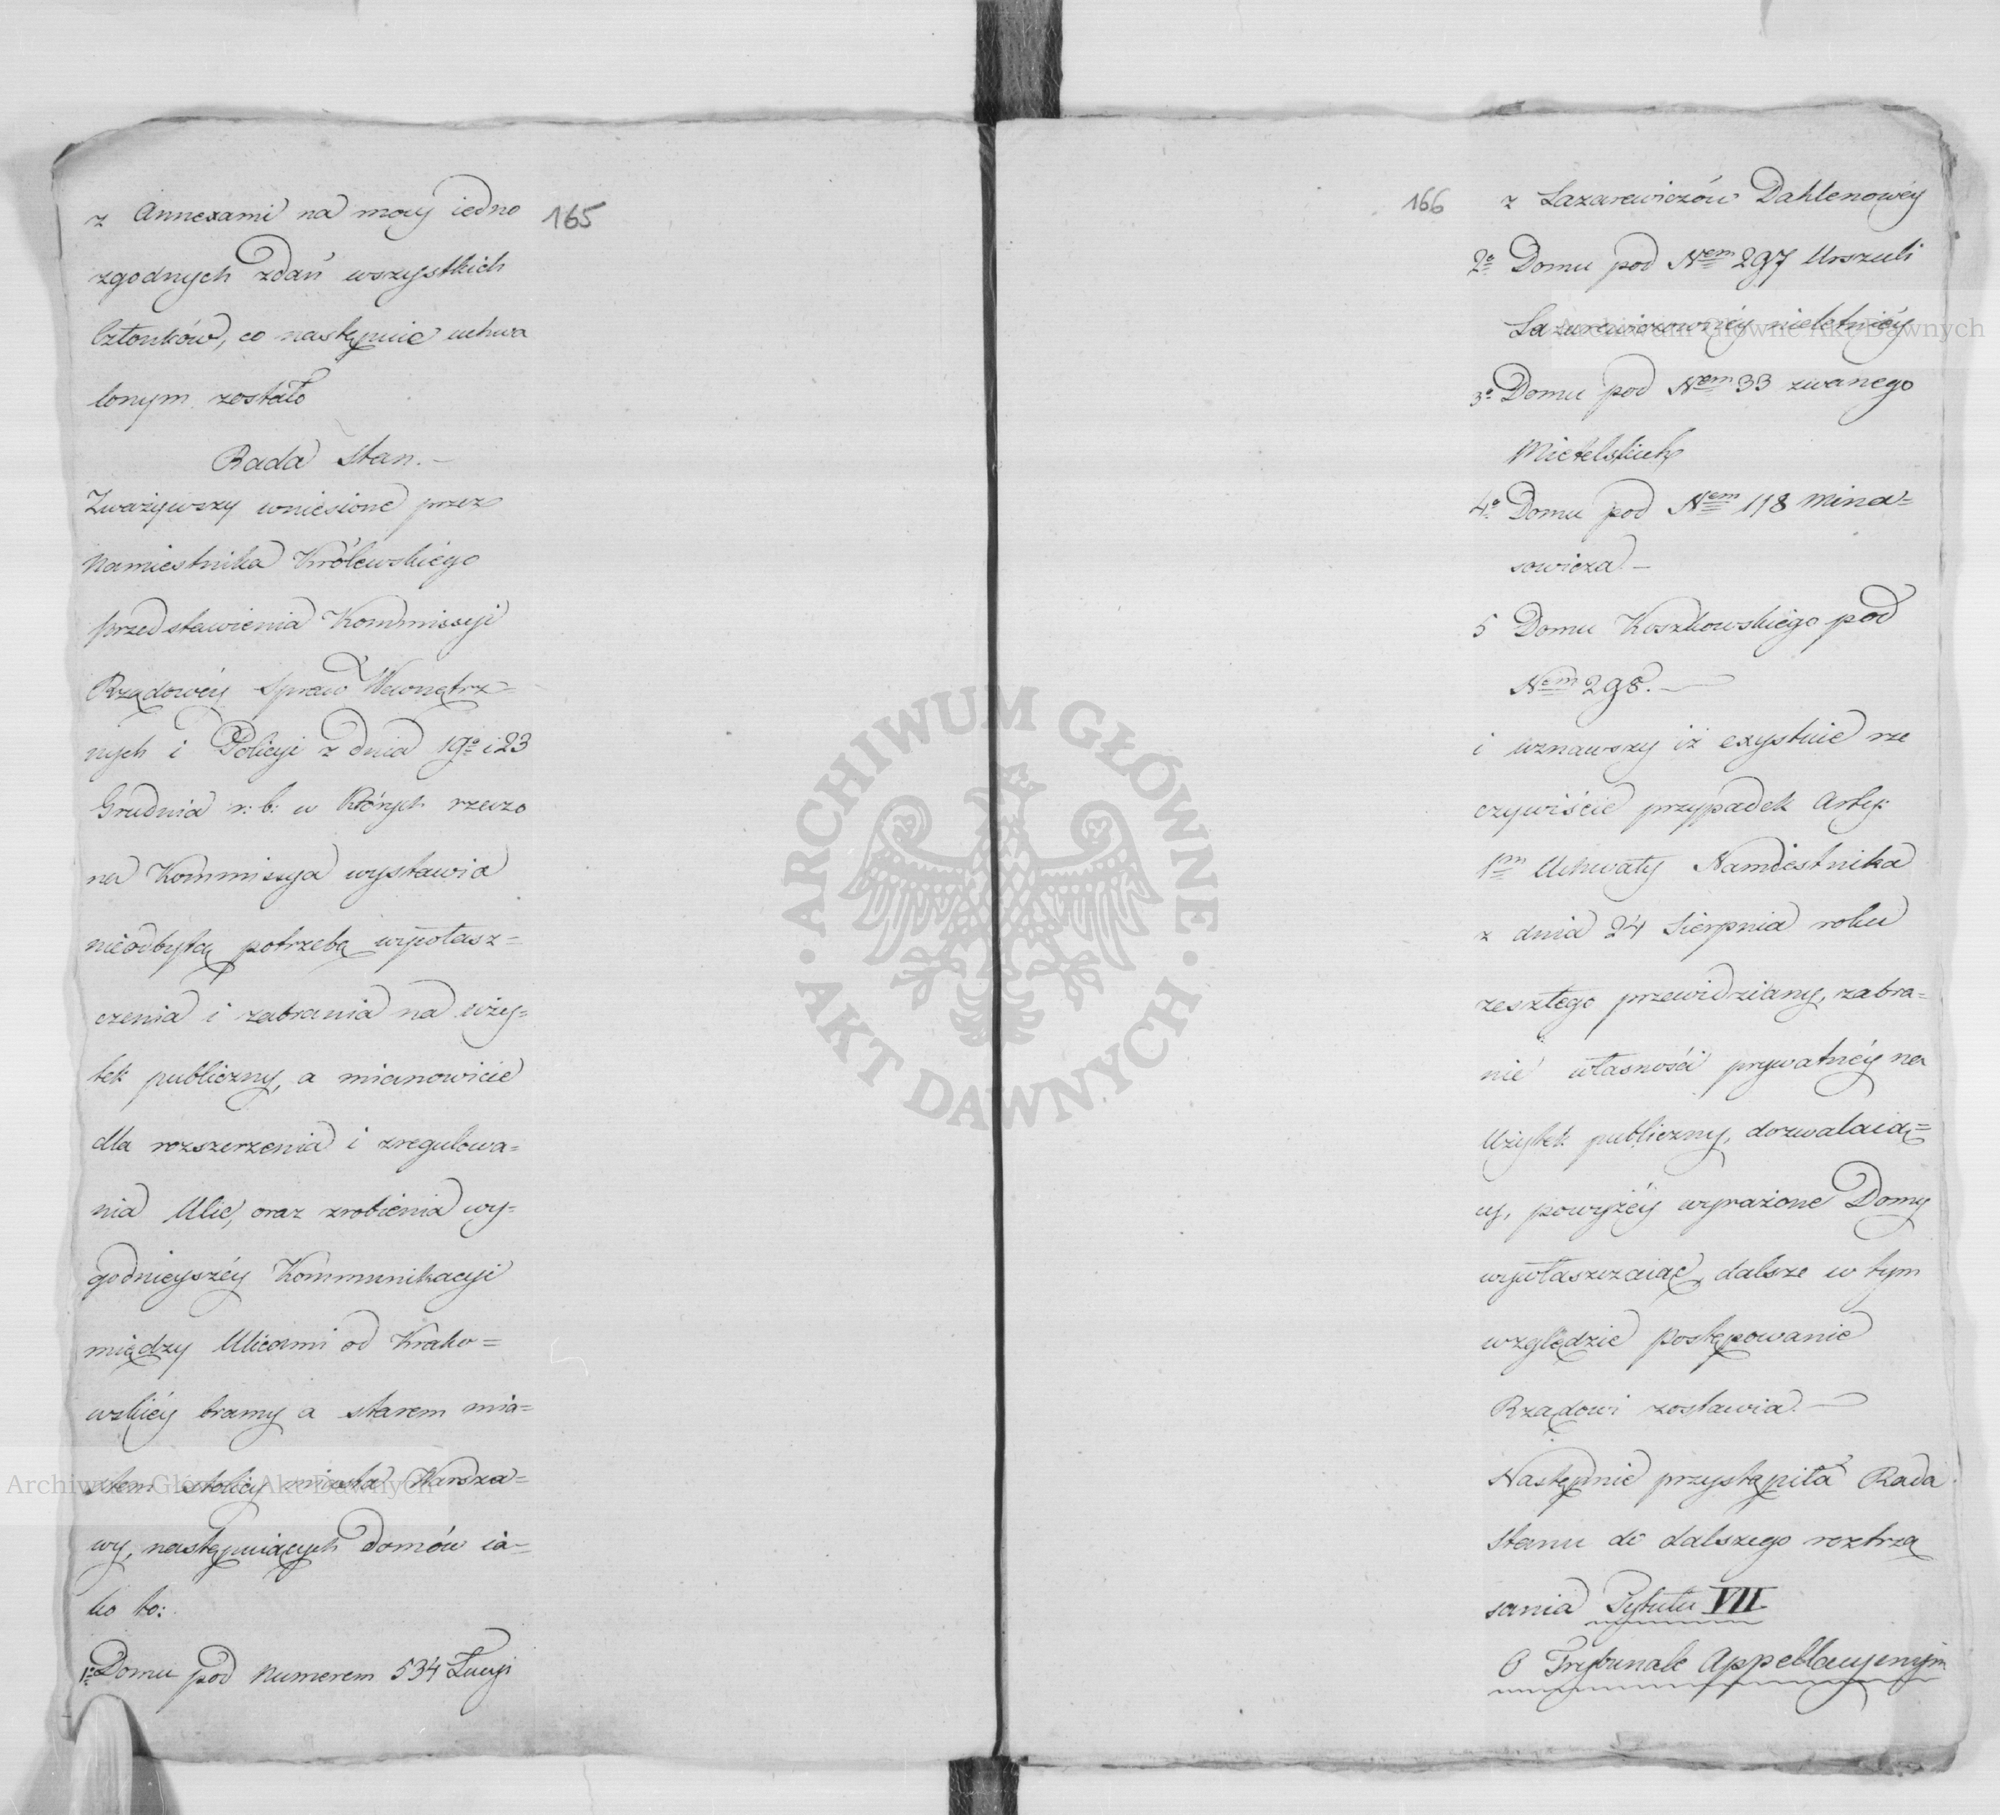 165
z Annexami na mocy iedno
zgodnych zdań wszystkich
Członków, co następuie uchwa
lonym zostało
Rada Stan. –
Zważywszy wniesione przez
Namiestnika Królewskiégo
przedstawienia Kommissyi
Rządowéy Spraw Wewnętrz=
nych i Policyi z dnia 19º i 23
Grudnia r: b: w których rzeczo
na Kommissya wystawia
nieodbytą potrzebę wywłasz=
czenia i zabrania na uży=
tek publiczny, a mianowicie
dla rozszerzenia i zregulowa=
nia Ulic, oraz zrobienia wy=
godnieyszéy Kommunikacyi
między Ulicami od Krako=
wskiéy bramy a starem mia=
stem stolicy miasta Warsza=
wy, następuiących Domów ia=
ko to:
1º Domu pod Numerem 534 Łucyi
166
z Lazarewiczów Dahlenowéy
2º Domu pod Nem 297 Urszuli
Lazarewiczownéy nieletniéy
3º Domu pod Nem 33 zwanego
Mietelskich
4º Domu pod Nem 118 Mina=
sowicza. –
5 Domu Koszkowskiégo pod
Nem 298. –
i uznawszy iż exystuie rze
czywiście przypadek Arty:
1m Uchwały Namiestnika
z dnia 24 Sierpnia roku
zeszłego przewidziany, zabra=
nie własności prywatnéy na
Użytek publiczny, dozwalaią=
cy, powyżéy wyrażone Domy
wywłaszczaiąc, dalsze w tym
względzie postępowanie
Rządowi zostawia. –
Następnie przystąpiła Rada
Stanu do dalszego roztrzą
sania Tytułu VII
O Trybunale Appellacyinym
ARCHIWUM GŁÓWNE AKT DAWNYCH
Archiwum Główne Akt Dawnych
Archiwum Główne Akt Dawnych